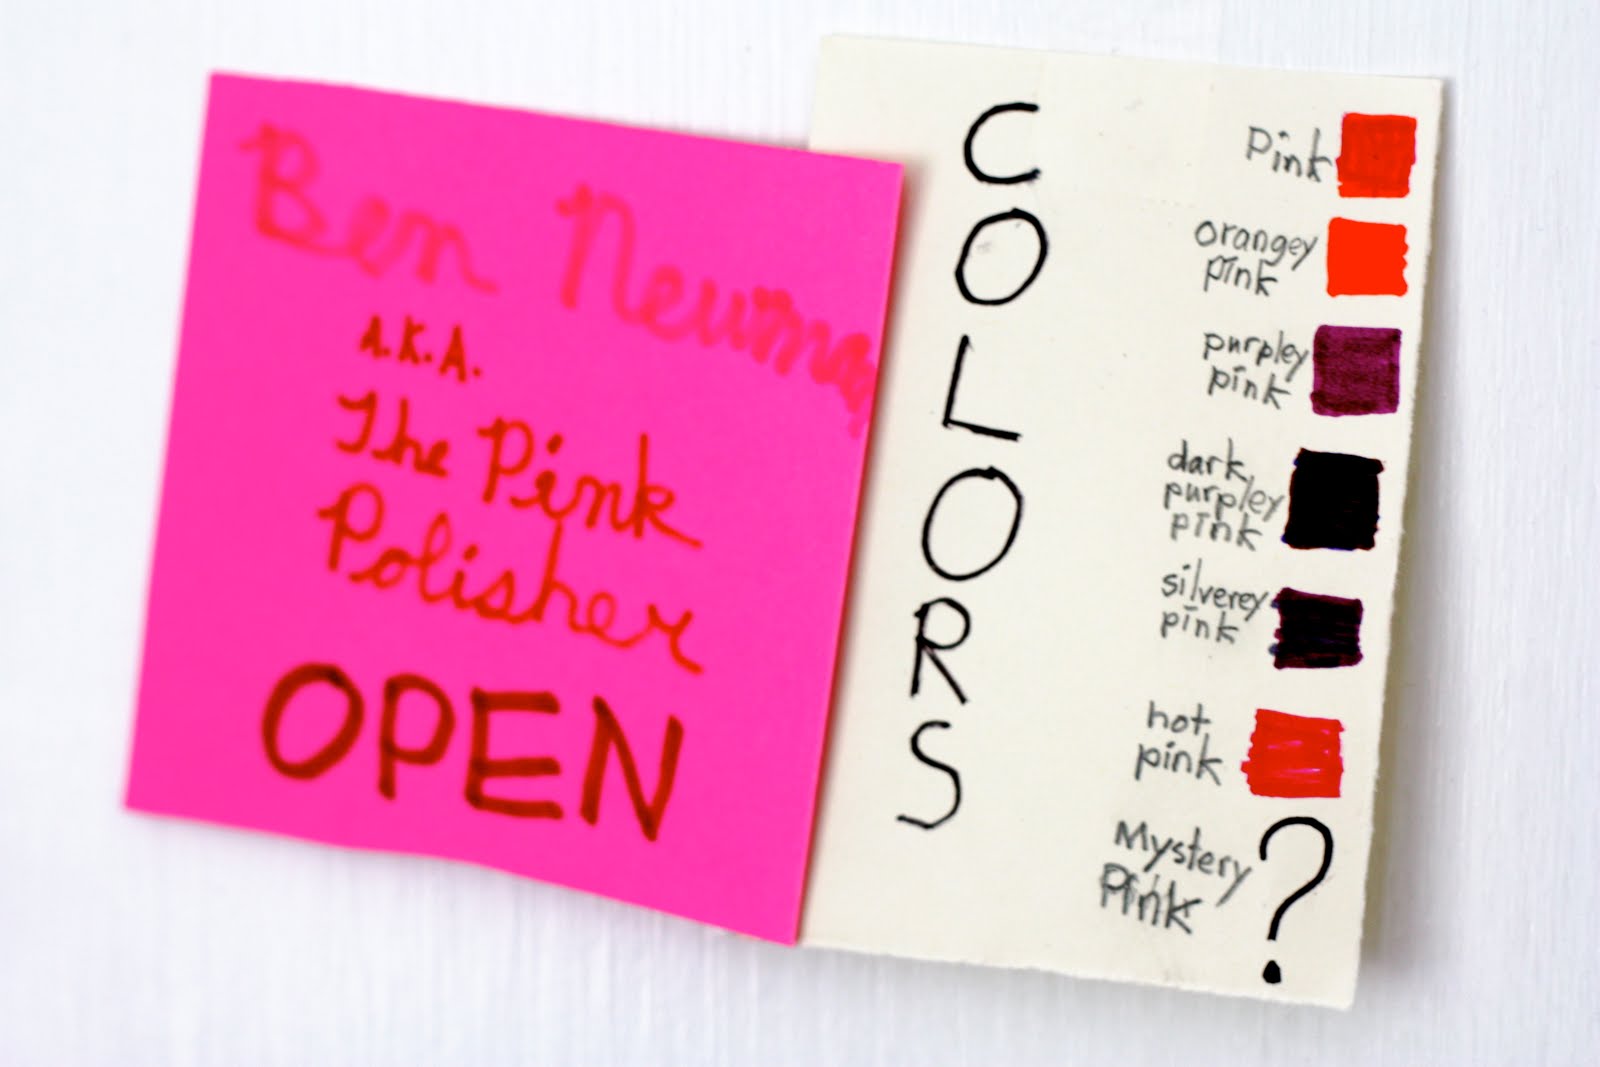 Ben Neuman
A.K.A.
The Pink
Polisher
OPEN
COLORS
Pink
orangey
pink
purpley
pink
dark
purpley
pink
silverey
pink
hot
pink
Mystery
Pink
?